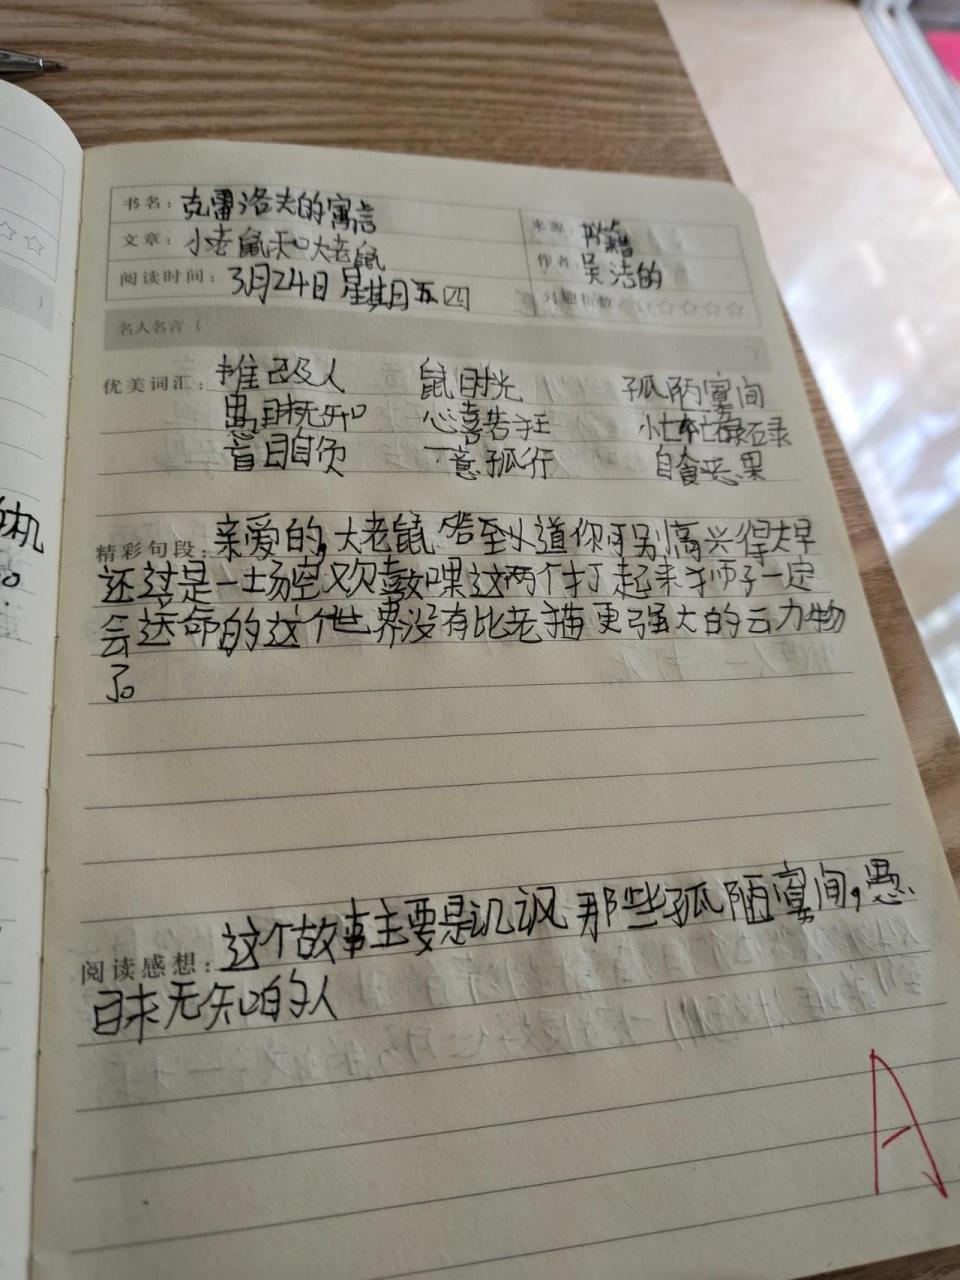 书名：克雷洛夫的寓言
来源：书籍
文章：小老鼠和大老鼠
作者：吴洁的
阅读时间：3月24日 星期五四
兴趣指数：☆☆☆☆☆
名人名言（ ）
优美词汇：推己及人 鼠目时光 孤陋寡间
愚昧无知 心喜若狂 忙忙碌碌
盲目自负 一意孤行 自食恶果
精彩句段：亲爱的，大老鼠 道你可别高兴得太早
还过是一场空欢喜 果这两个打起来狮子一定
会送命的这个世界没有比老猫更强大的动物
了。
这个故事主要是讥讽那些孤陋寡间，愚
阅读感想：
昧无知的人
A